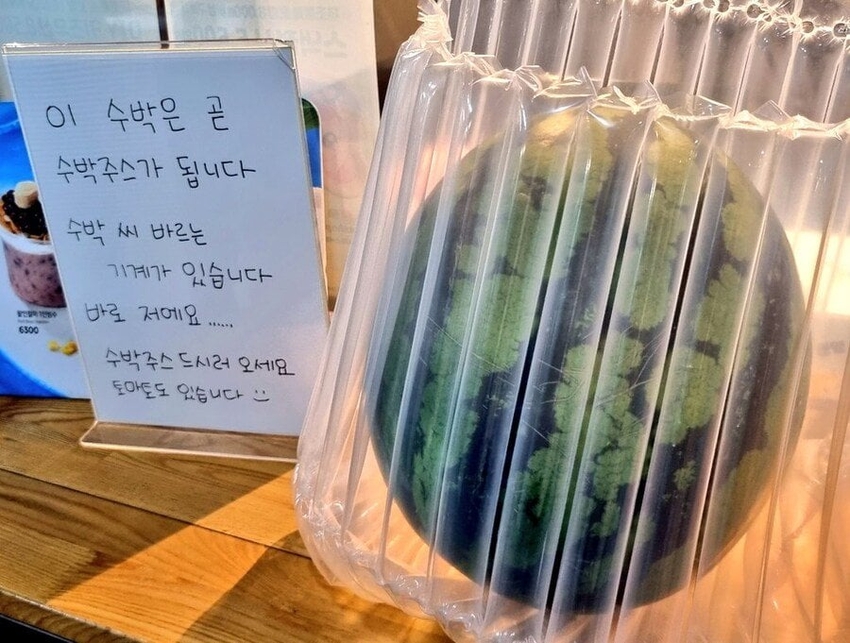 이 수박은 곧
수박주스가 됩니다
수박 씨 바르는
기계가 있습니다
바로 저예요 ......
수박주스 드시러 오세요
토마토도 있습니다 :)
6300